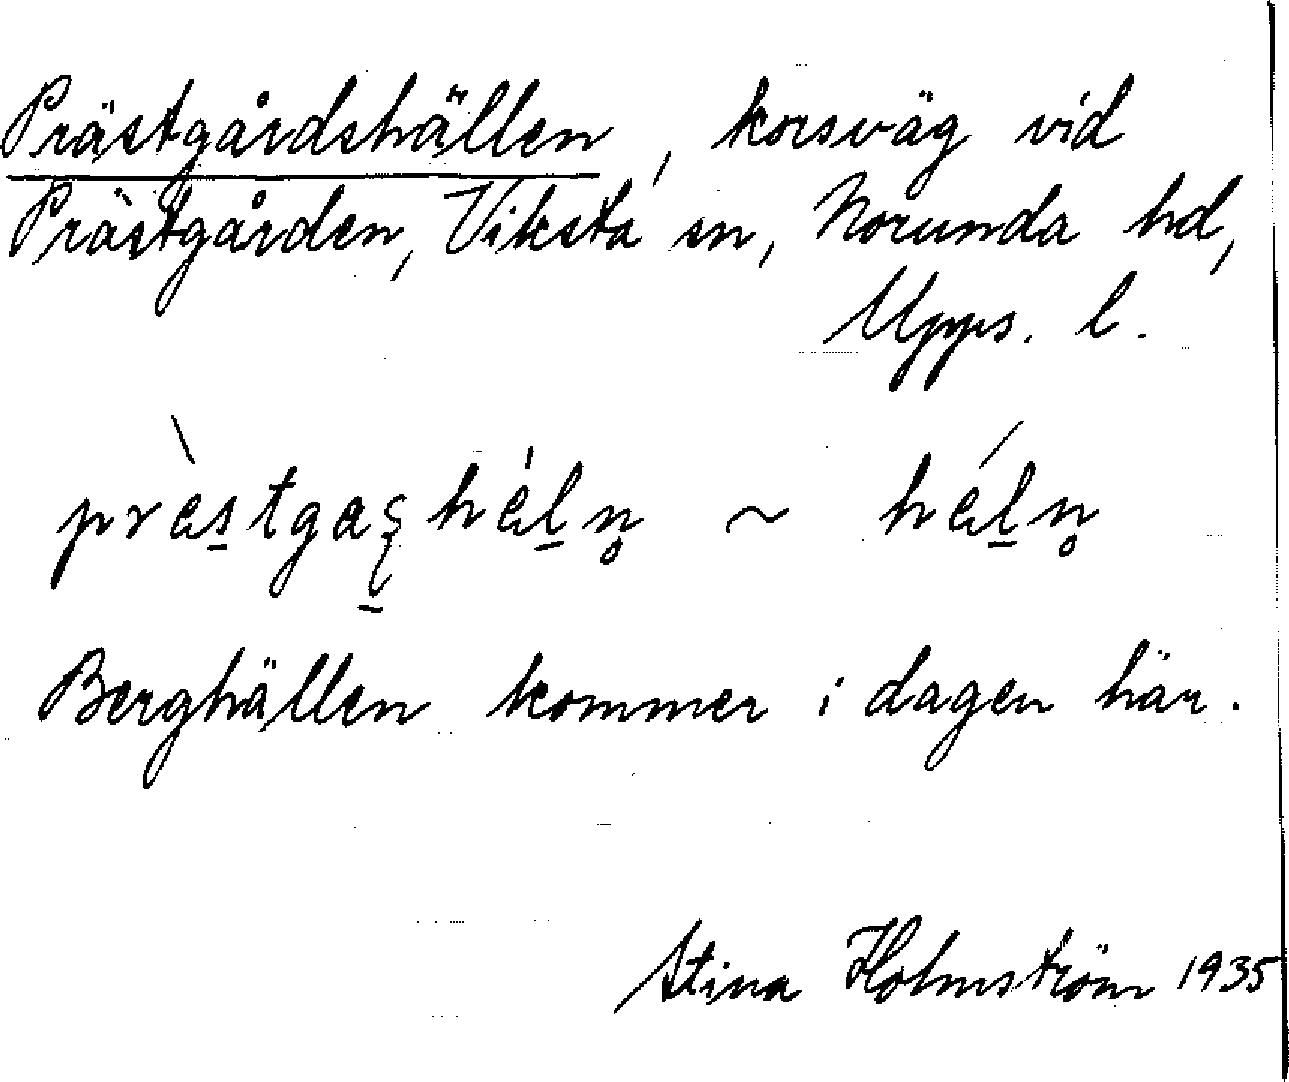 Prästgårdshällen, korsväg vid
Prästgården, Viksta sn, Norunda hd,
Upps. l.
~
Berghällen kommer i dagen här.
Stina Holmström 1935